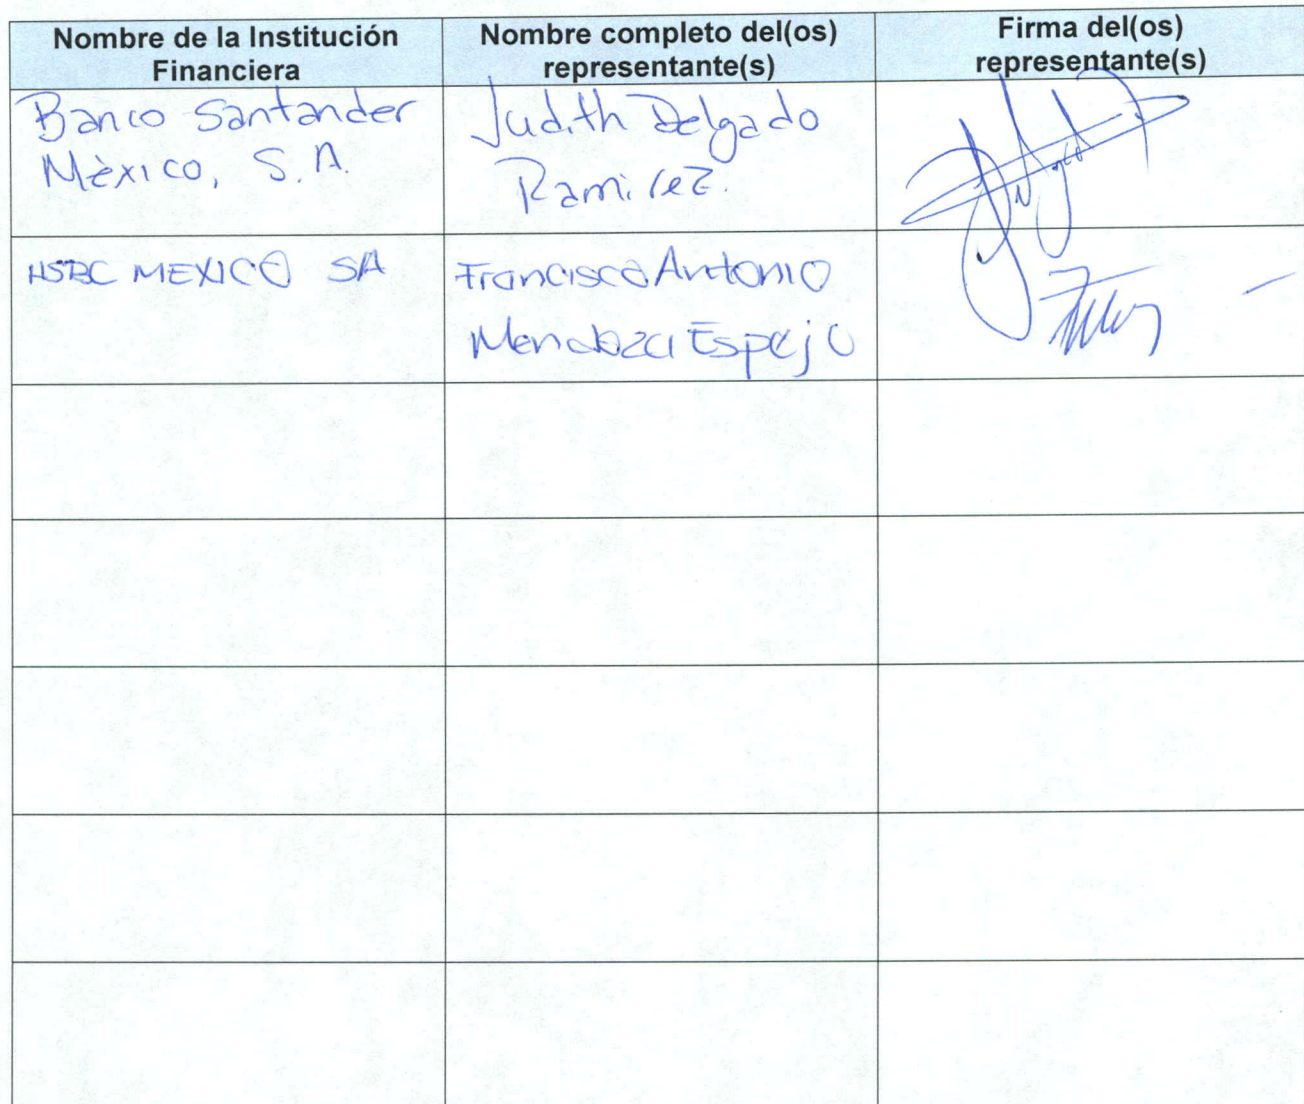 Nombre de la Institución
Financiera
Nombre completo del(os)
representante(s)
Firma del(os)
representante(s)
Banco Santander
México, S.A.
Judith Delgado
Ramirez.
HSBC MEXICO SA
Francisco Antonio
Mendoza Espejo